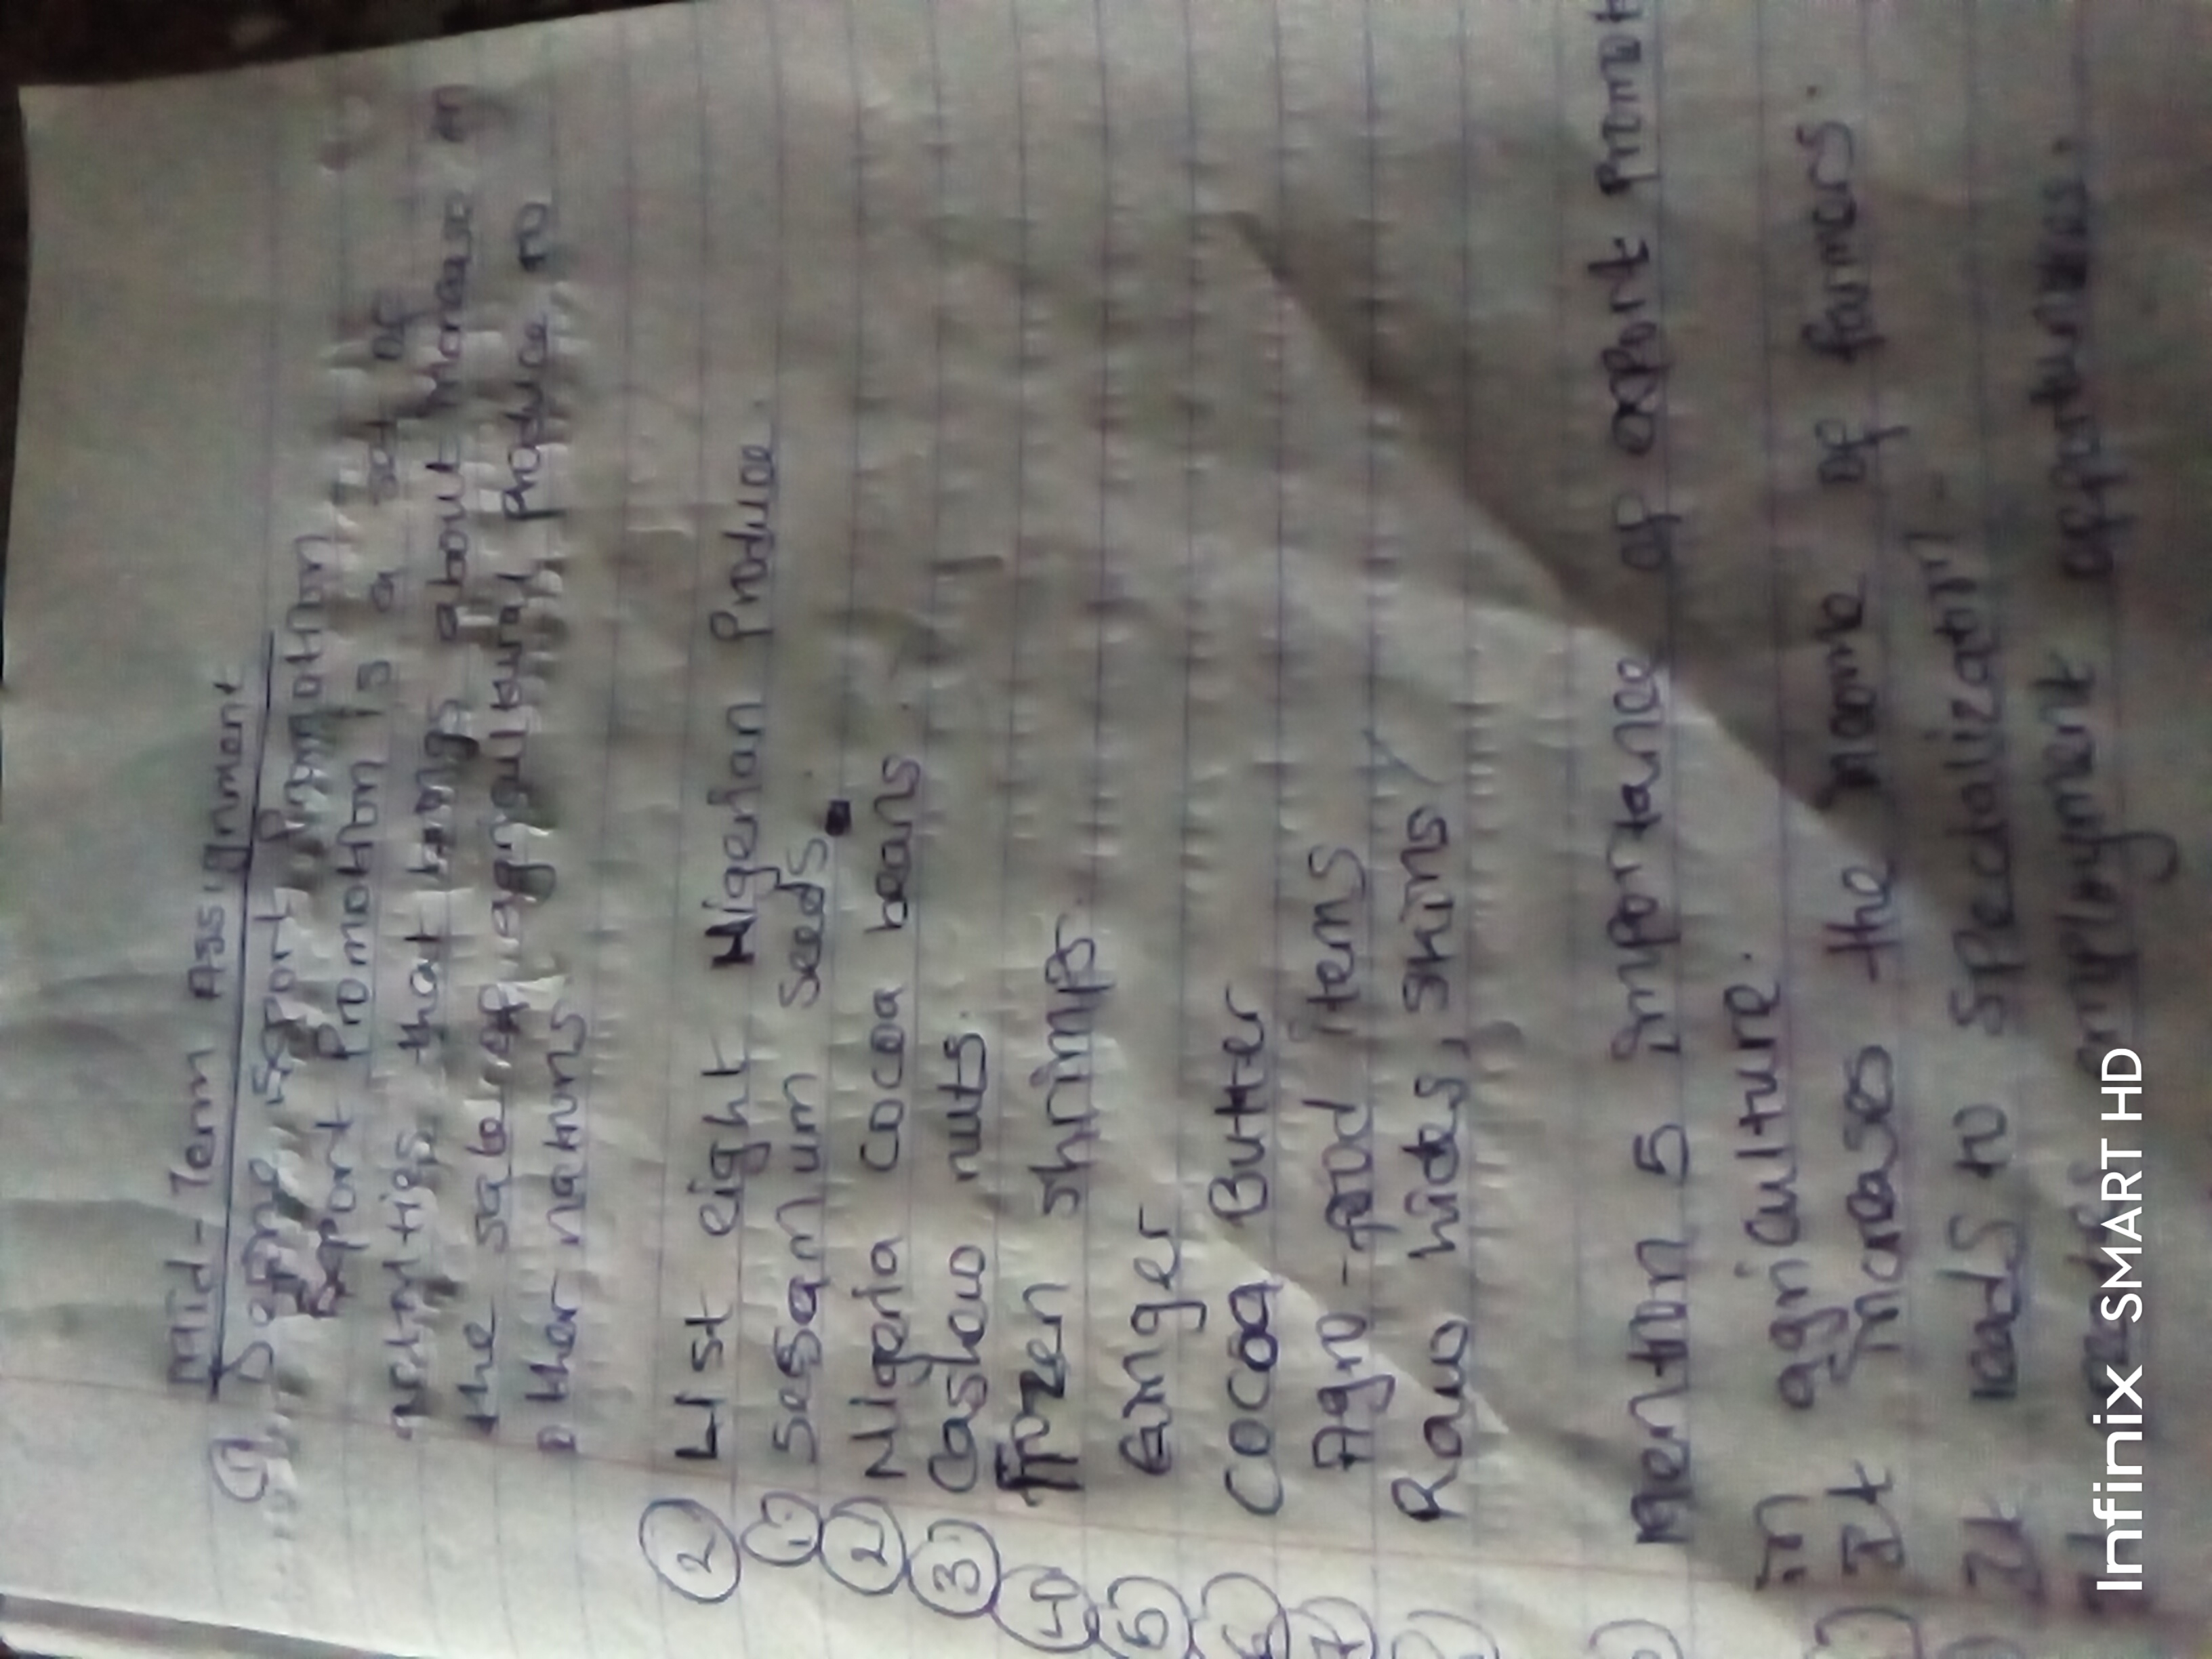 Mid-Term Assignment
Q1. Define Export Promotion
Export Promotion is a set of
activities that brings about increase in
the sale of aggricultural produce to
other nations
② List eight Nigerian Produce.
① Sesamum seeds
② Nigeria cocoa beans
③ Cashew nuts
④ Frozen shrimps.
⑤ Ginger
⑥ Cocoa Butter
⑦ Agro-food items
Raw hides, skins
Mention 5 importance of export promot
in agriculture.
It increases the income of farmers.
It leads to specialization
It creates employment opportunities.
Infinix SMART HD